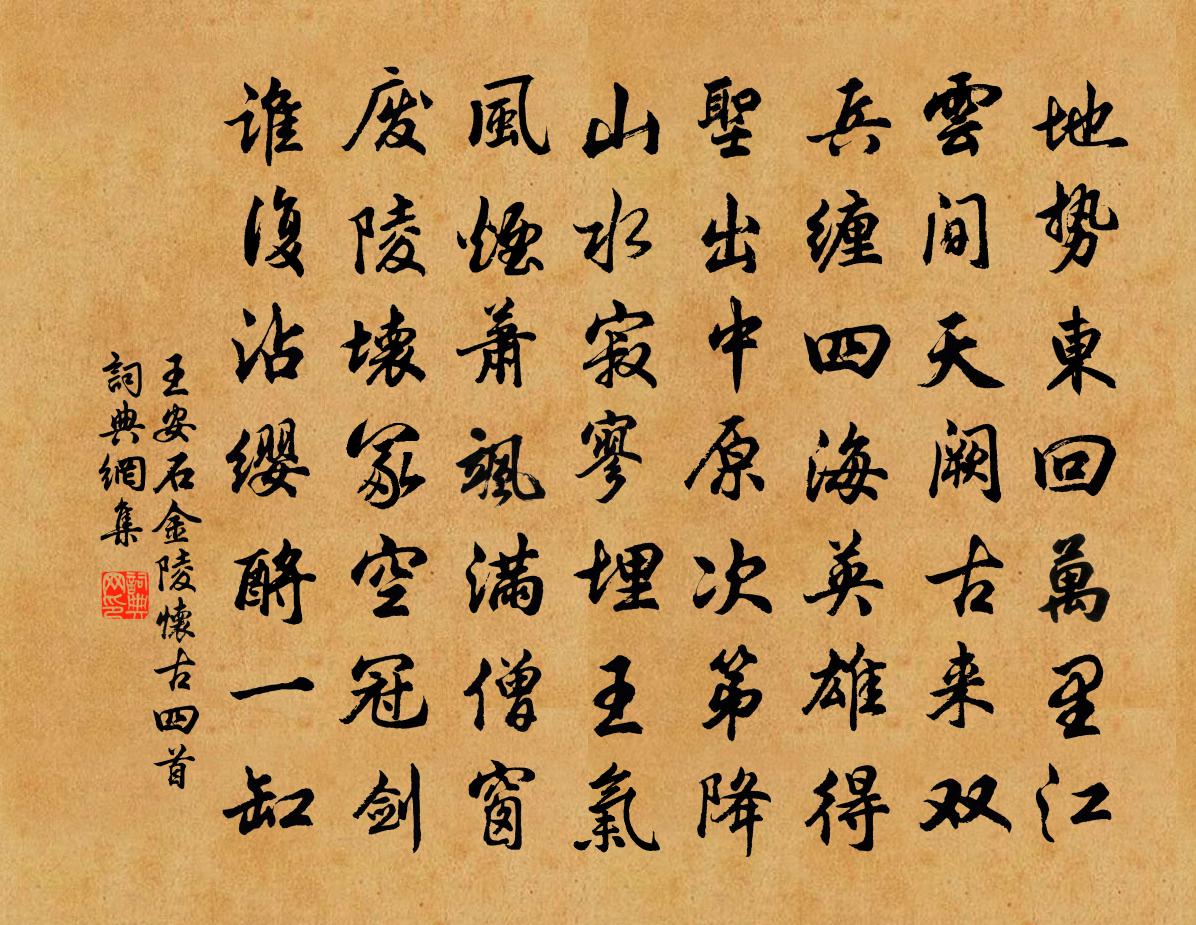 地势東回萬里江
雲間天闕古来双
兵缠四海英雄得
聖出中原次第降
山水寂寥埋王氣
風煙蕭颯满僧窗
废陵壞冢空冠剑
谁復沾缨酹一缸
王安石金陵懷古四首
詞典網集
詞典网印